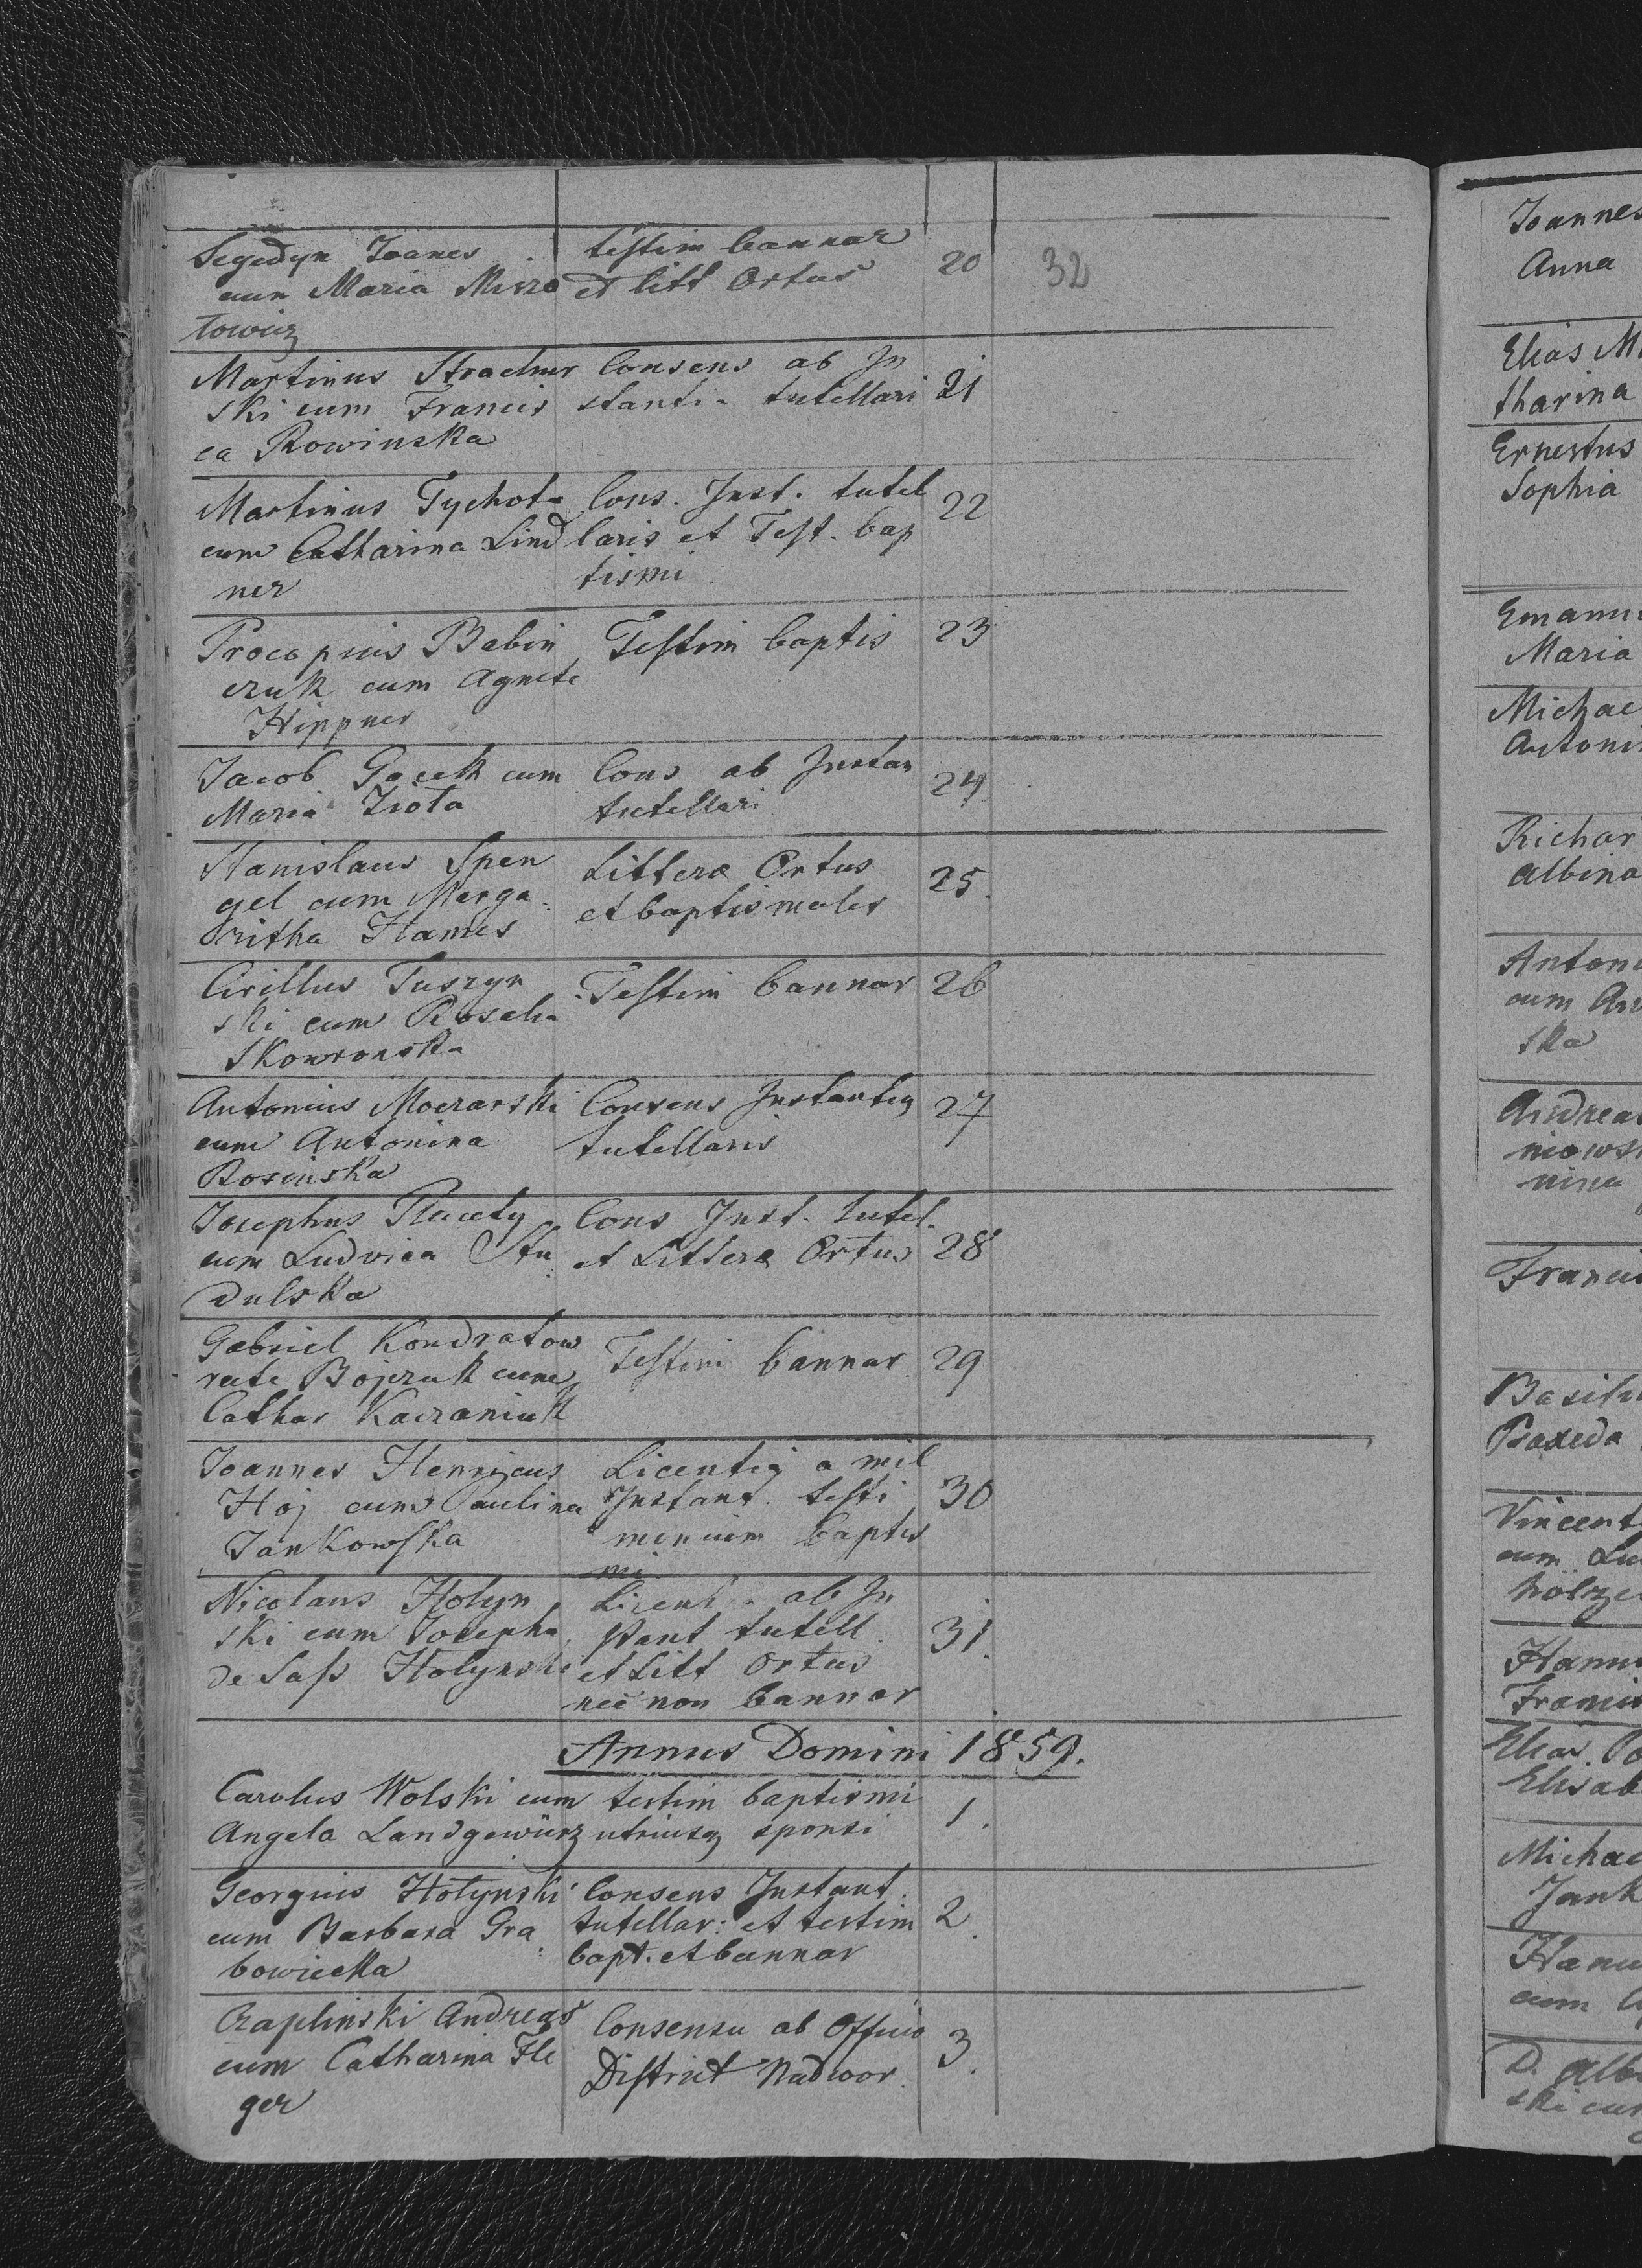 Segedyn Joanes testim bannor 20 32
cum Maria Miszo et litt Ortus
towicz
Martinus Strachur Consens ab In
ski cum Francis stantia tutellari 21
ca Rowinska
Martinus Tychota Cons. Inst. tutel 22
cum Catharina Lind laris et Test. bap
ner tismi
Procopius Babin Testim baptis 23
czuk cum Agnete
Hippner
Jacob Gacek cum Cons ab Instan 24
Maria Ziota tutellari
Stanislaus Spen Littera Ortus 25.
gel cum Marga et baptismales
ritha Hames
Cirillus Tuszyn Testim bannor 26
ski cum Rosalia
Skowronska
Antonius Moczarski Consens Instantia 27
cum Antonina tutellaris
Rosinska
Josephus Placety Cons Inst. tutel.
cum Ludvica Stu et Littera Ortus 28
dulska
Gabriel Kondratow Testim bannor 29
recte Bojczuk cum
Cathar Kaczaniuk
Joannes Henricus Licentia a mil
Hoj cum Paulina Instant. testi 30
Jankowska monium baptis
mi
Nicolaus Hotyn Licent. ab In
ski cum Josepha stant tutell 31.
de Sass Hotynski et Litt Ortus
nec non bannor
Annus Domini 1859.
Carolus Wolski cum testim baptismi 1.
Angela Landgewürz utriusq sponsi
Georgius Hotynski Consens Instant.
cum Barbara Gra tutellar: et testim 2
bowiecka bapt. et bannor
Czaplinski Andreas Consensu ab Officio 3.
cum Catharina Fle District Nadwor.
ger
Joannes
Anna
Elias M
tharina
Ernestus
Sophia
Emanu
Maria
Michae
Antoni
Richar
Albina
Antoni
cum An
ska
Andreas
niowsk
nina
Franci
Basili
Praxeda
Vincent
cum Lu
hölze
Hann
Francis
Elias Po
Elisab
Michae
Jank
Hanu
cum C
D. Alb
ski cum